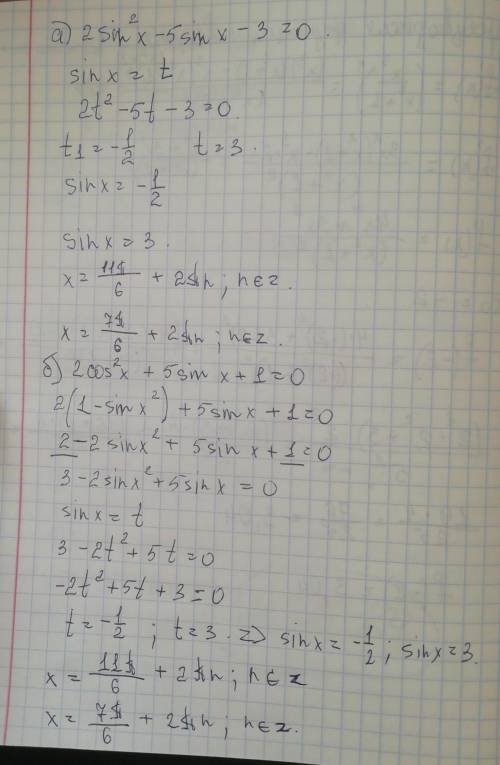 а) 2sin²x - 5sinx - 3 = 0.
sinx = t
2t² - 5t - 3 = 0.
t₁ = -1/2   t = 3.
sinx = -1/2
sinx = 3.
x = 11π/6 + 2πn; n∈z.
x = 7π/6 + 2πn; n∈z.
б) 2cos²x + 5sinx + 1 = 0
2(1 - sinx²) + 5sinx + 1 = 0
2 - 2sinx² + 5sinx + 1 = 0
3 - 2sinx² + 5sinx = 0
sinx = t
3 - 2t² + 5t = 0
-2t² + 5t + 3 = 0
t = -1/2; t = 3. => sinx = -1/2; sinx = 3.
x = 11π/6 + 2πn; n∈z
x = 7π/6 + 2πn; n∈z.